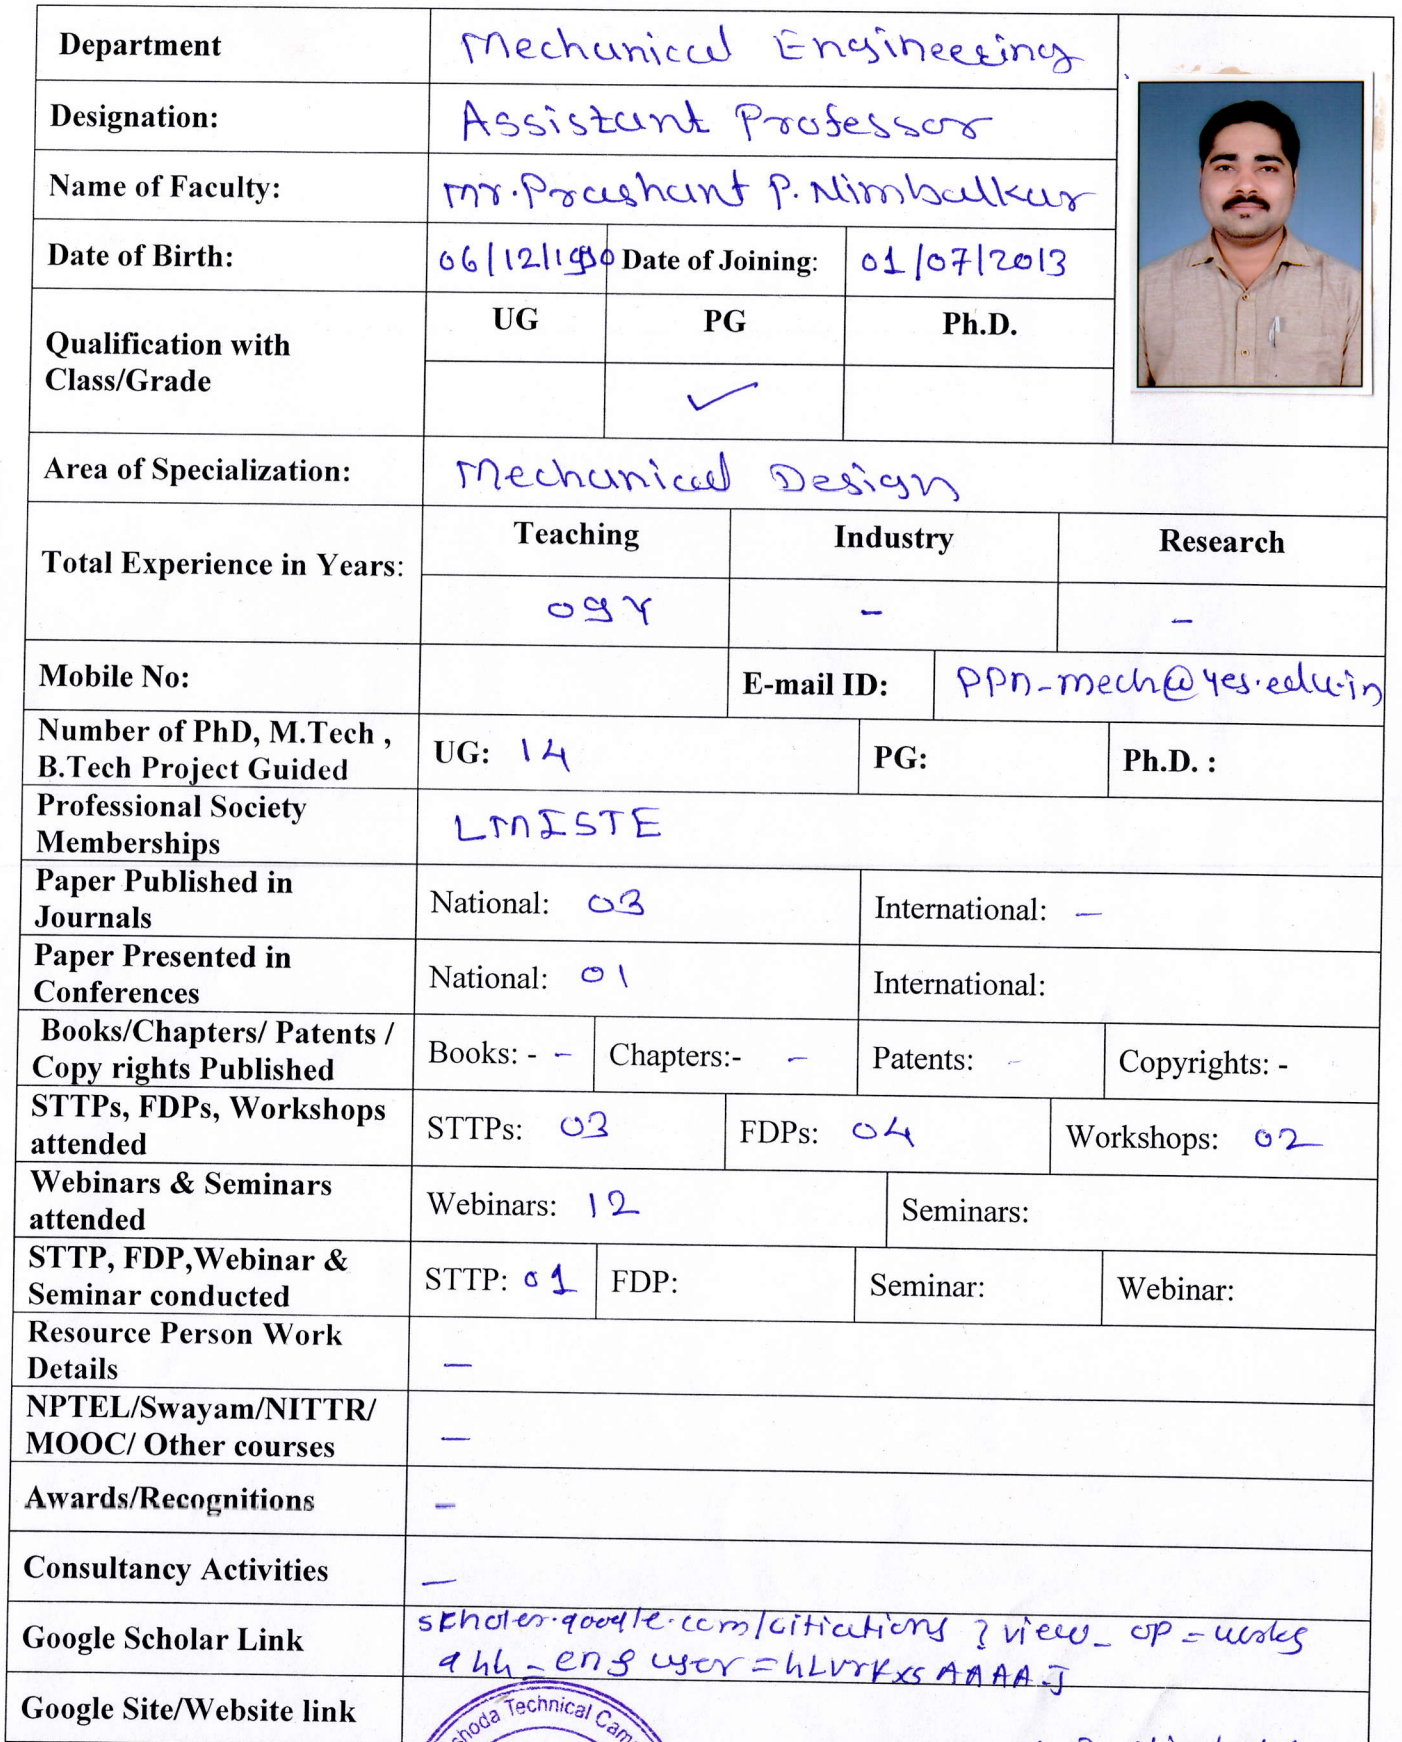 Department Mechanical Engineering
Designation: Assistant Professor
Name of Faculty: Mr. Prashant P. Nimbalkar
Date of Birth: 06/12/1990 Date of Joining: 01/07/2013
Qualification with
Class/Grade
UG PG Ph.D.
✓
Area of Specialization: Mechanical Design
Total Experience in Years:
Teaching Industry Research
09Y - -
Mobile No: E-mail ID: ppn_mech@yes.edu.in
Number of PhD, M.Tech ,
B.Tech Project Guided
UG: 14 PG: Ph.D. :
Professional Society
Memberships
LMISTE
Paper Published in
Journals
National: 03 International: -
Paper Presented in
Conferences
National: 01 International:
Books/Chapters/ Patents /
Copy rights Published
Books: - - Chapters:- - Patents: - Copyrights: -
STTPs, FDPs, Workshops
attended
STTPs: 03 FDPs: 04 Workshops: 02
Webinars & Seminars
attended
Webinars: 12 Seminars:
STTP, FDP,Webinar &
Seminar conducted
STTP: 01 FDP: Seminar: Webinar:
Resource Person Work
Details
-
NPTEL/Swayam/NITTR/
MOOC/ Other courses
-
Awards/Recognitions -
Consultancy Activities -
Google Scholar Link
scholer.google.com/citiations ? view_op =
user =
Google Site/Website link
Technical